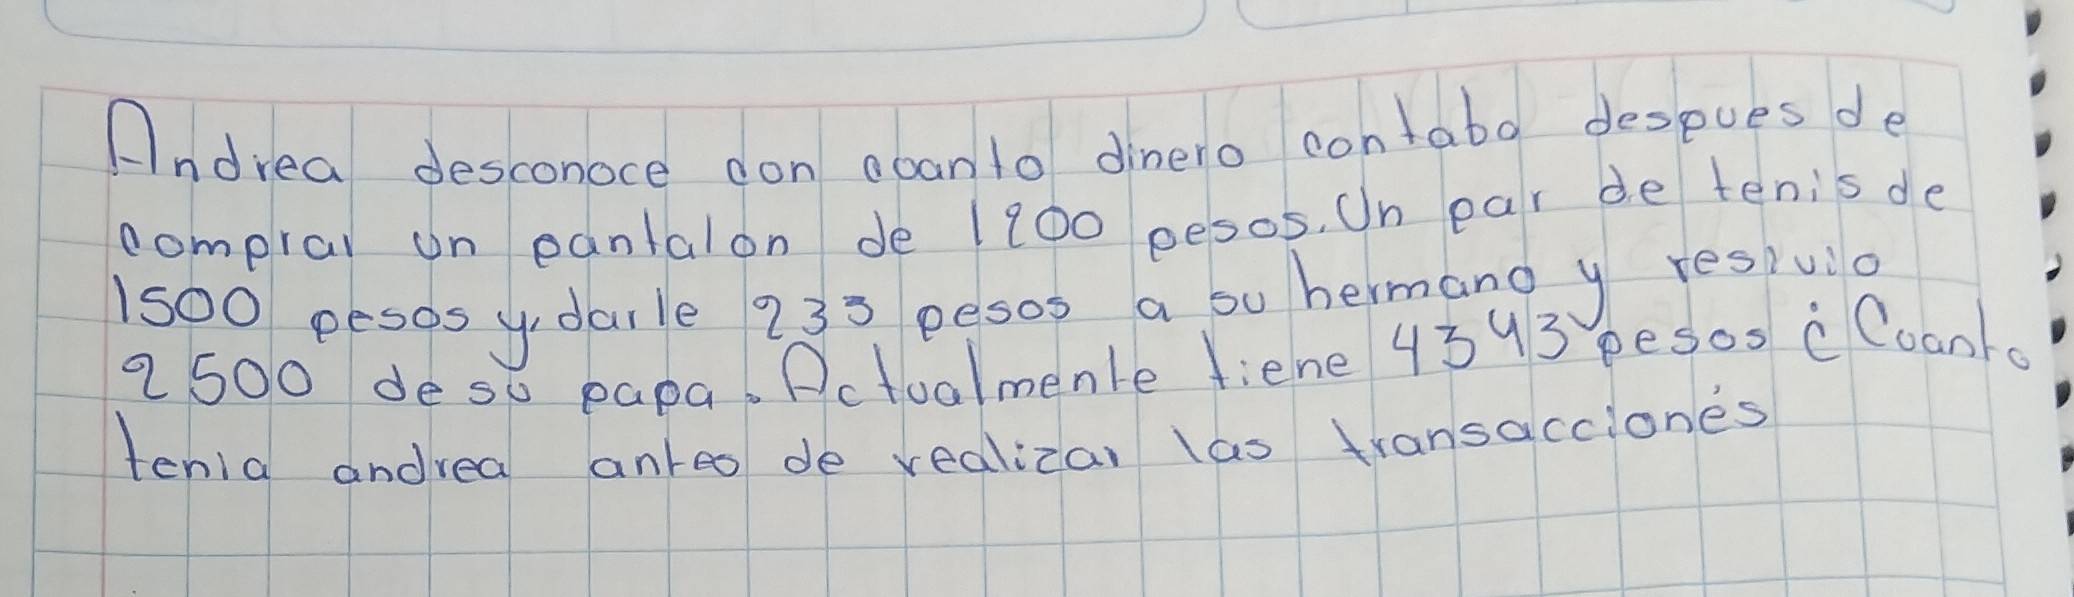 Andrea desconoce con cuanto dinero contaba despues de
comprar un pantalon de 1200 pesos. Un par de tenis de
1500 pesos y darle 233 pesos a su hermano y resivio
2500 de su papa. Actualmente tiene 4343 pesos ¿Cuanto
tenia andrea antes de realizar las transacciónes